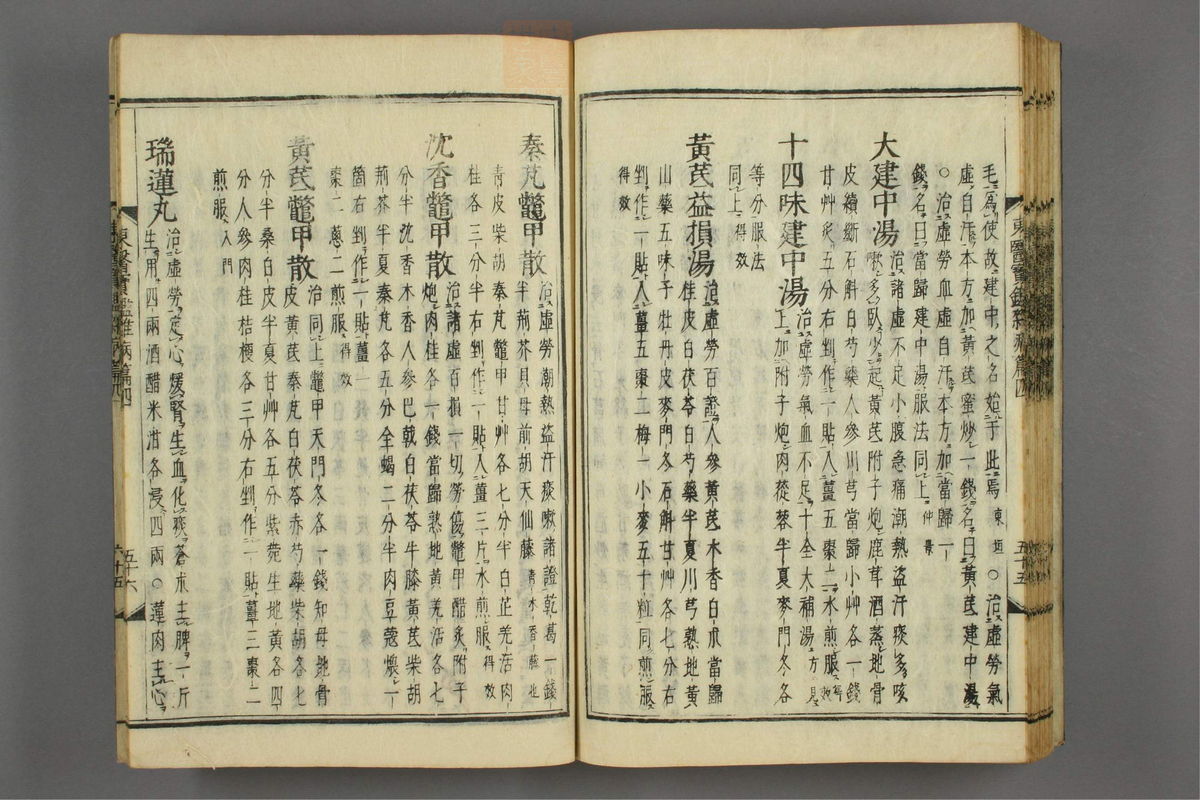 毛爲使故建中之名始于此焉東垣〇治虛勞氣
虛自汗本方加黃芪蜜炒一錢名曰黃芪建中湯
〇治虛勞血虛自汗本方加當歸一
錢名曰當歸建中湯服法同上仲景
大建中湯治諸虛不足小腹急痛潮熱盜汗痰多咳
嗽多臥少起黃芪附子炮鹿茸酒蒸地骨
皮續斷石斛白芍藥人參川芎當歸小艸各一錢
甘艸炙五分右剉作一貼入薑五棗二水煎服得效
十四味建中湯治虛勞氣血不足十全大補湯方見
上加附子炮肉蓯蓉半夏麥門冬各
等分服法
同上得效
黃芪益損湯治虛勞百證人參黃芪木香白朮當歸
桂皮白茯苓白芍藥半夏川芎熟地黃
山藥五味子牡丹皮麥門冬石斛甘艸各七分右
剉作一貼入薑五棗二梅一小麥五十粒同煎服
得效
東醫寶鑑雜病篇四
五十五
秦芃鼈甲散治虛勞潮熱盜汗痰嗽諸證乾葛一錢
半荊芥貝母前胡天仙藤靑木香藤也
靑皮柴胡秦芃鼈甲甘艸各七分半白芷羌活肉
桂各三分半右剉作一貼入薑三片水煎服得效
沈香鼈甲散治諸虛百損一切勞傷鼈甲醋炙附子
炮肉桂各一錢當歸熟地黃羌活各七
分半沈香木香人參巴戟白茯苓牛膝黃芪柴胡
荊芥半夏秦芃各五分全蝎二分半肉豆蔻煨一
箇右剉作一貼薑二
棗二蔥二煎服得效
黃芪鼈甲散治同上鼈甲天門冬各一錢知母地骨
皮黃芪秦芃白茯苓赤芍藥柴胡各七
分半桑白皮半夏甘艸各五分紫菀生地黃各四
分人參肉桂桔梗各三分右剉作一貼薑三棗二
煎服入門
瑞蓮丸治虛勞定心煖腎生血化痰蒼朮主脾一斤
生用四兩酒醋米泔各浸四兩〇蓮肉主心
東醫寶鑑雜病篇四
五十六